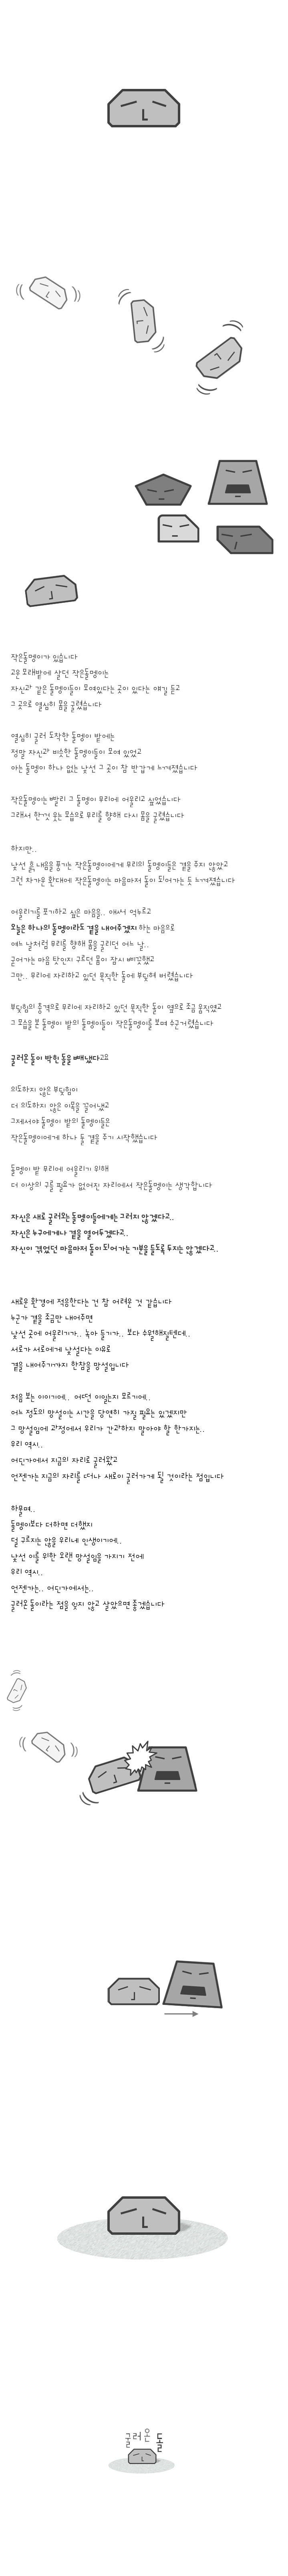 작은돌멩이가 있습니다
고운 모래밭에 살던 작은돌멩이는
자신과 같은 돌멩이들이 모여있다는 곳이 있다는 얘길 듣고
그 곳으로 열심히 몸을 굴렸습니다
열심히 굴러 도착한 돌멩이 밭에는
정말 자신과 비슷한 돌멩이들이 모여 있었고
아는 돌멩이 하나 없는 낯선 그 곳이 참 반갑게 느껴졌습니다
작은돌멩이는 빨리 그 돌멩이 무리에 어울리고 싶었습니다
그래서 한껏 웃는 모습으로 무리를 향해 다시 몸을 굴렸습니다
하지만..
낯선 흙 내음을 풍기는 작은돌멩이에게 무리의 돌멩이들은 곁을 주지 않았고
그런 차가운 환대에 작은돌멩이는 마음마저 돌이 되어가는 듯 느껴졌습니다
어울리기를 포기하고 싶은 마음을.. 애써 억누르고
오늘은 하나의 돌멩이라도 곁을 내어주겠지 하는 마음으로
여느 날처럼 무리를 향해 몸을 굴리던 어느 날..
굳어가는 마음 탓인지 구르던 몸이 잠시 삐끗했고
그만.. 무리에 자리하고 있던 묵직한 돌에 부딪혀 버렸습니다
부딪힘의 충격으로 무리에 자리하고 있던 묵직한 돌이 옆으로 조금 움직였고
그 모습을 본 돌멩이 밭의 돌멩이들이 작은돌멩이를 보며 수근거렸습니다
굴러온 돌이 박힌 돌을 빼냈다고요
의도하지 않은 부딪힘이
더 의도하지 않은 이목을 끌어냈고
그제서야 돌멩이 밭의 돌멩이들은
작은돌멩이에게 하나 둘 곁을 주기 시작했습니다
돌멩이 밭 무리에 어울리기 위해
더 이상의 구를 필요가 없어진 자리에서 작은돌멩이는 생각합니다
자신은 새로 굴러오는 돌멩이들에게는 그러지 않겠다고..
자신은 누구에게나 곁을 열어두겠다고..
자신이 겪었던 마음마저 돌이 되어가는 기분을 들도록 두지는 않겠다고..
새로운 환경에 적응한다는 건 참 어려운 것 같습니다
누군가 곁을 조금만 내어주면
낯선 곳에 어울리기가.. 녹아 들기가.. 보다 수월해질텐데..
서로가 서로에게 낯설다는 이유로
곁을 내어주기까지 한참을 망설입니다
처음 보는 이이기에.. 어떠한 이일는지 모르기에..
어느 정도의 망설이는 시간을 당연히 가질 필요는 있겠지만
그 망설임에 과정에서 우리가 간과하지 말아야 할 한가지는..
우리 역시..
어딘가에서 지금의 자리로 굴러왔고
언젠가는 지금의 자리를 떠나 새로이 굴러가게 될 것이라는 점입니다
하물며..
돌멩이보다 더하면 더했지
덜 구르지는 않을 우리네 인생이기에..
낯선 이를 위한 오랜 망설임을 가지기 전에
우리 역시..
언젠가는.. 어딘가에서는..
굴러온 돌이라는 점을 잊지 않고 살았으면 좋겠습니다
굴러온 돌